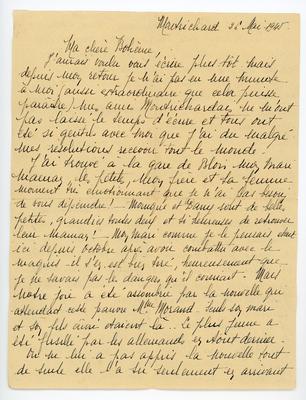 Montrichard 26 Mai 1945
Ma chère Bohème
J'aurais voulu vous écrire plus tôt mais
depuis mon retour je n'ai pas eu une minute
à moi, aussi extraordinaire que cela puisse
paraître! Mes amis Montrichardais ne m'ont
pas laissé le temps d'écrire et tous ont
été si gentils avec moi que j'ai dû malgré
mes résolutions recevoir tout le monde.
J'ai trouvé à la gare de Blois, mon mari
Maman, les petits, mon frère et sa femme
moment si émotionnant que je n'ai pas besoin
de vous dépeindre! Monique et Dany sont de belles
petites, grandies toutes deux et si heureuses de retrouver
leur Maman! Mon mari comme je le pensais, était
ici depuis octobre après avoir combattu avec le
maquis il s'en est bien tiré, heureusement que
je ne savais pas le danger qu'il courait. Mais
notre joie a été assombrie par la nouvelle qui
attendait cette pauvre Mme Morand. Seuls son mari
et son fils aîné étaient là.. Le plus jeune a
été fusillé par les allemands en Août dernier.
On ne lui a pas appris la nouvelle tout
de suite elle l'a su seulement en arrivant